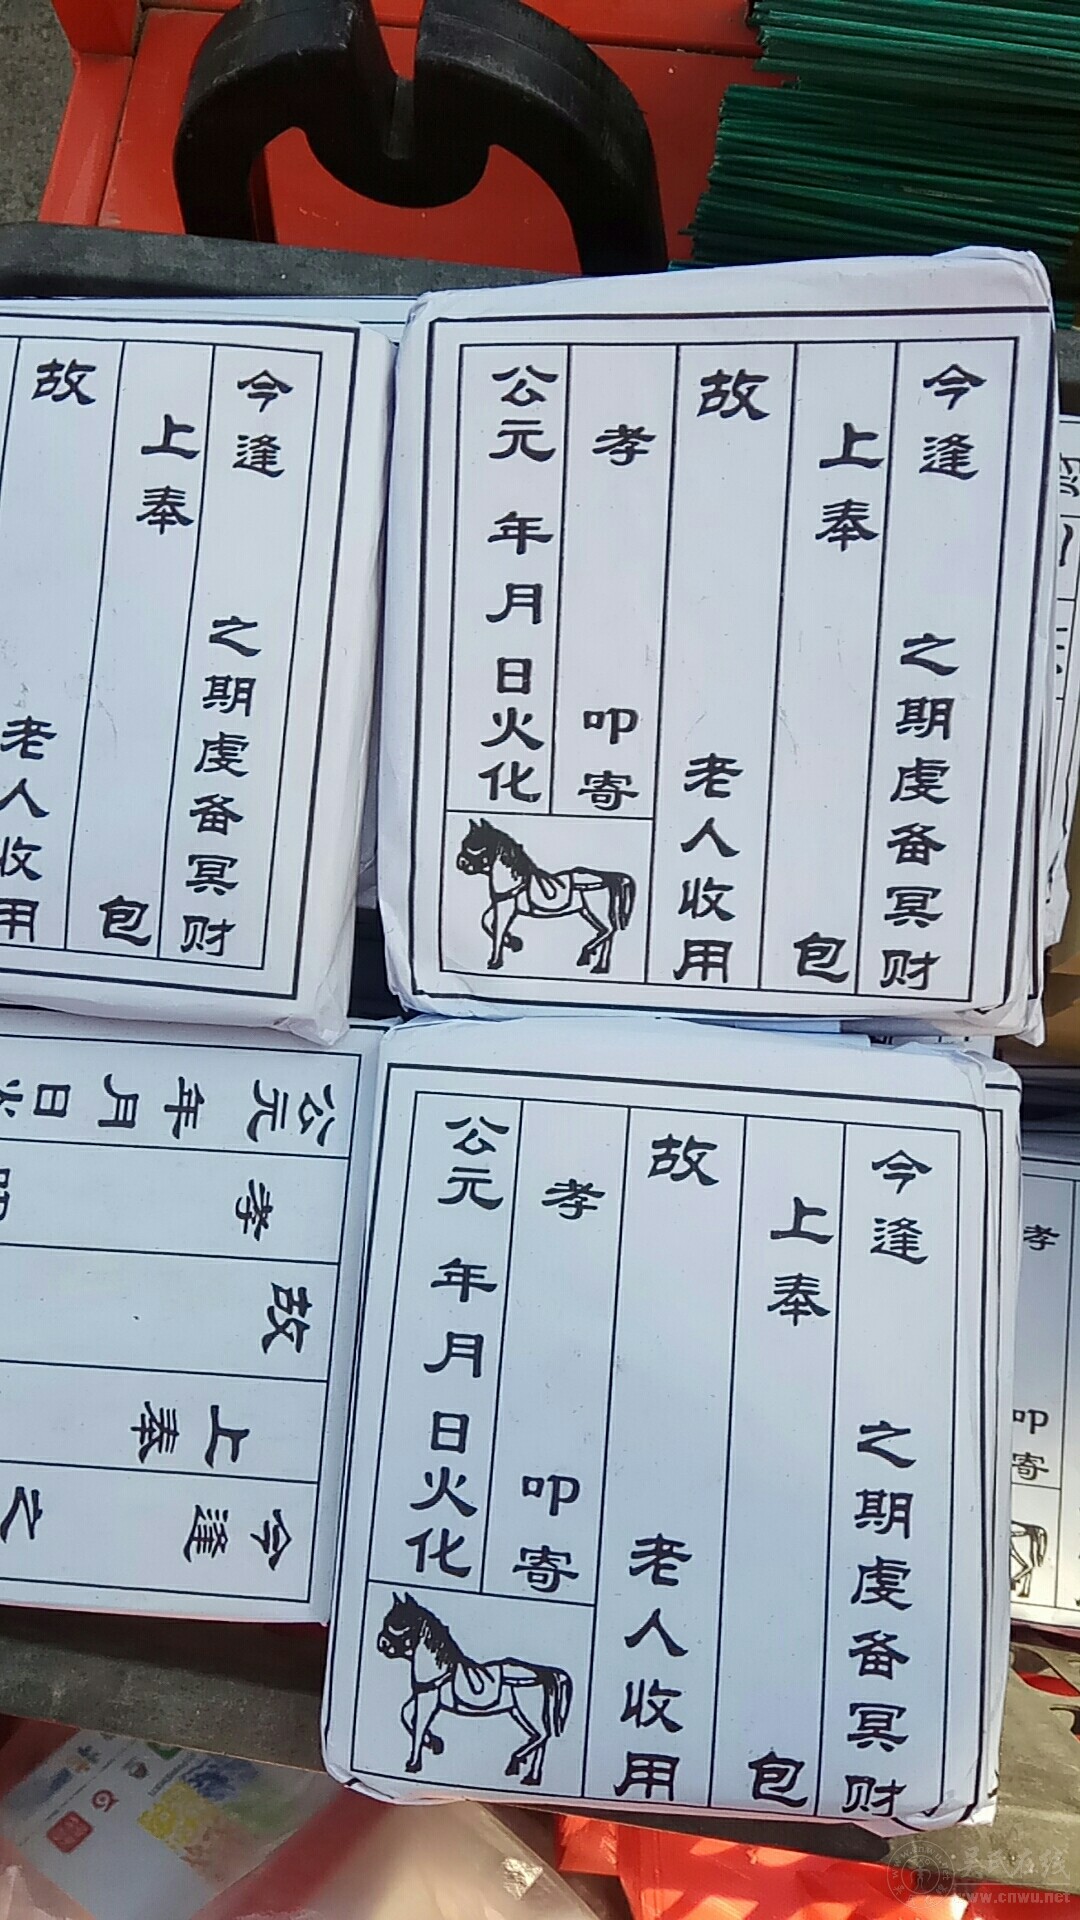 今逢 之期虔备冥财
上奉 包
故 老人收用
孝 叩寄
公元 年 月 日火化
今逢 之期虔备冥财
上奉 包
故 老人收用
今逢 之期虔备冥财
上奉 包
故 老人收用
孝 叩寄
公元 年 月 日火化
公元 年 月 日火
孝 叩
故
上奉
今逢 之
孝 叩寄
吴氏在线
www.cnwu.net